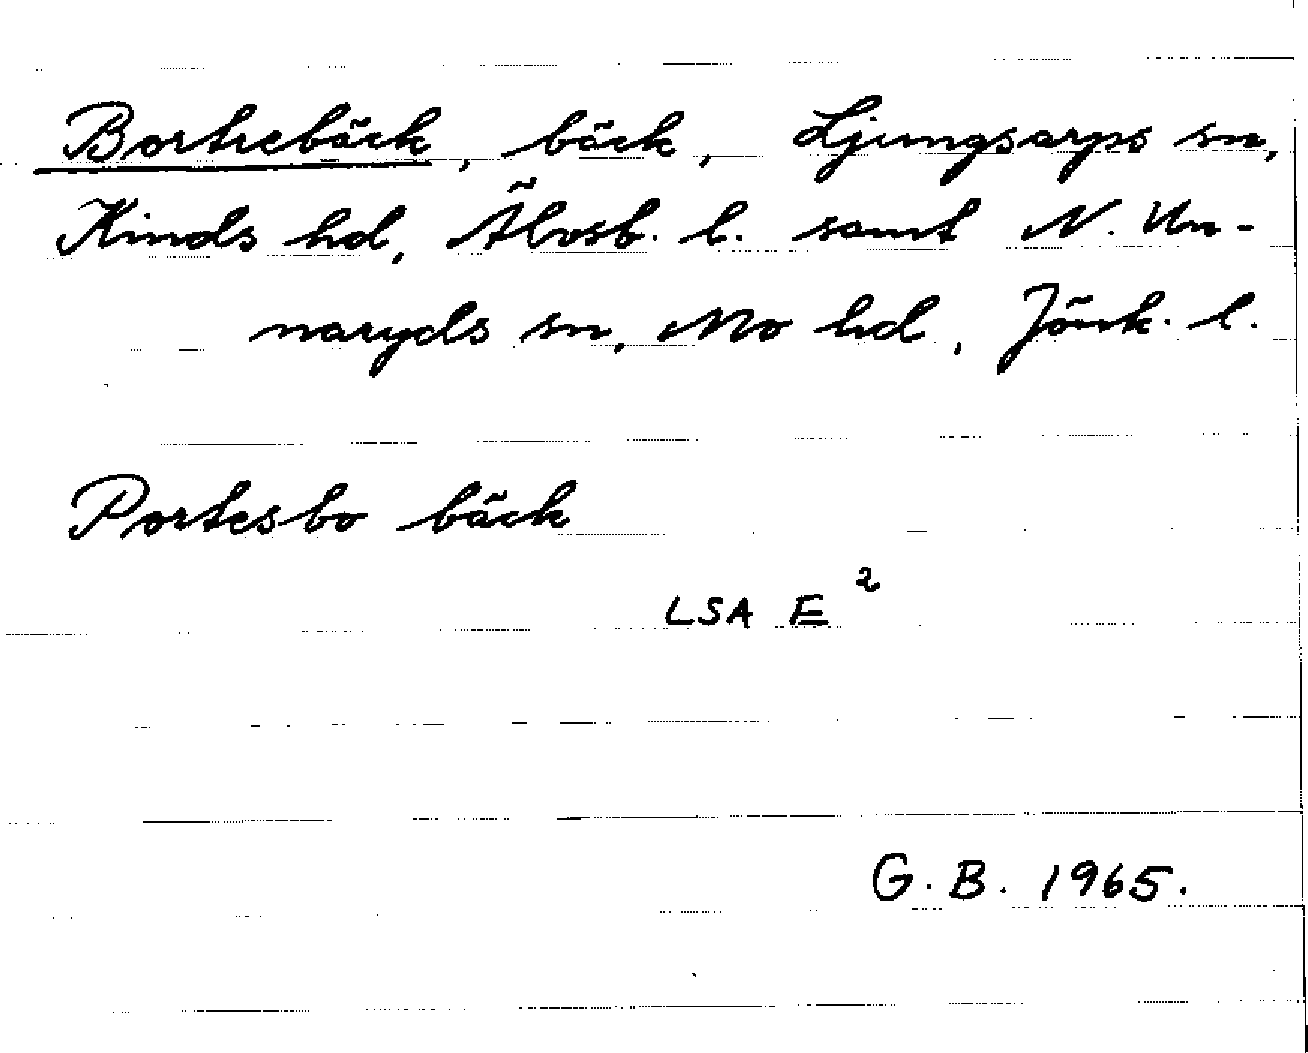 Bortrebäck, bäck, Ljungsarps sn,
Kinds hd, Älvsb. l. samt N. Un-
naryds sn, Mo hd, Jönk. l.
Portesbo bäck
LSA E²
G. B. 1965.